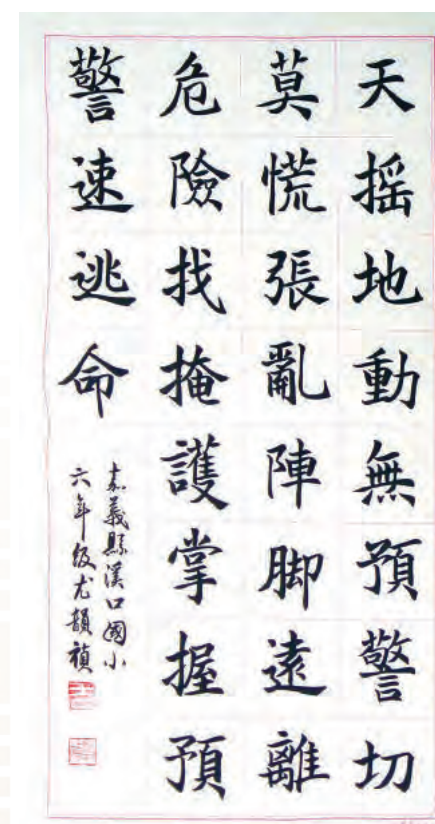 天搖地動無預警切
莫慌張亂陣脚遠離
危險找掩護掌握預
警速逃命
嘉義縣溪口國小
六年級尤韻禎